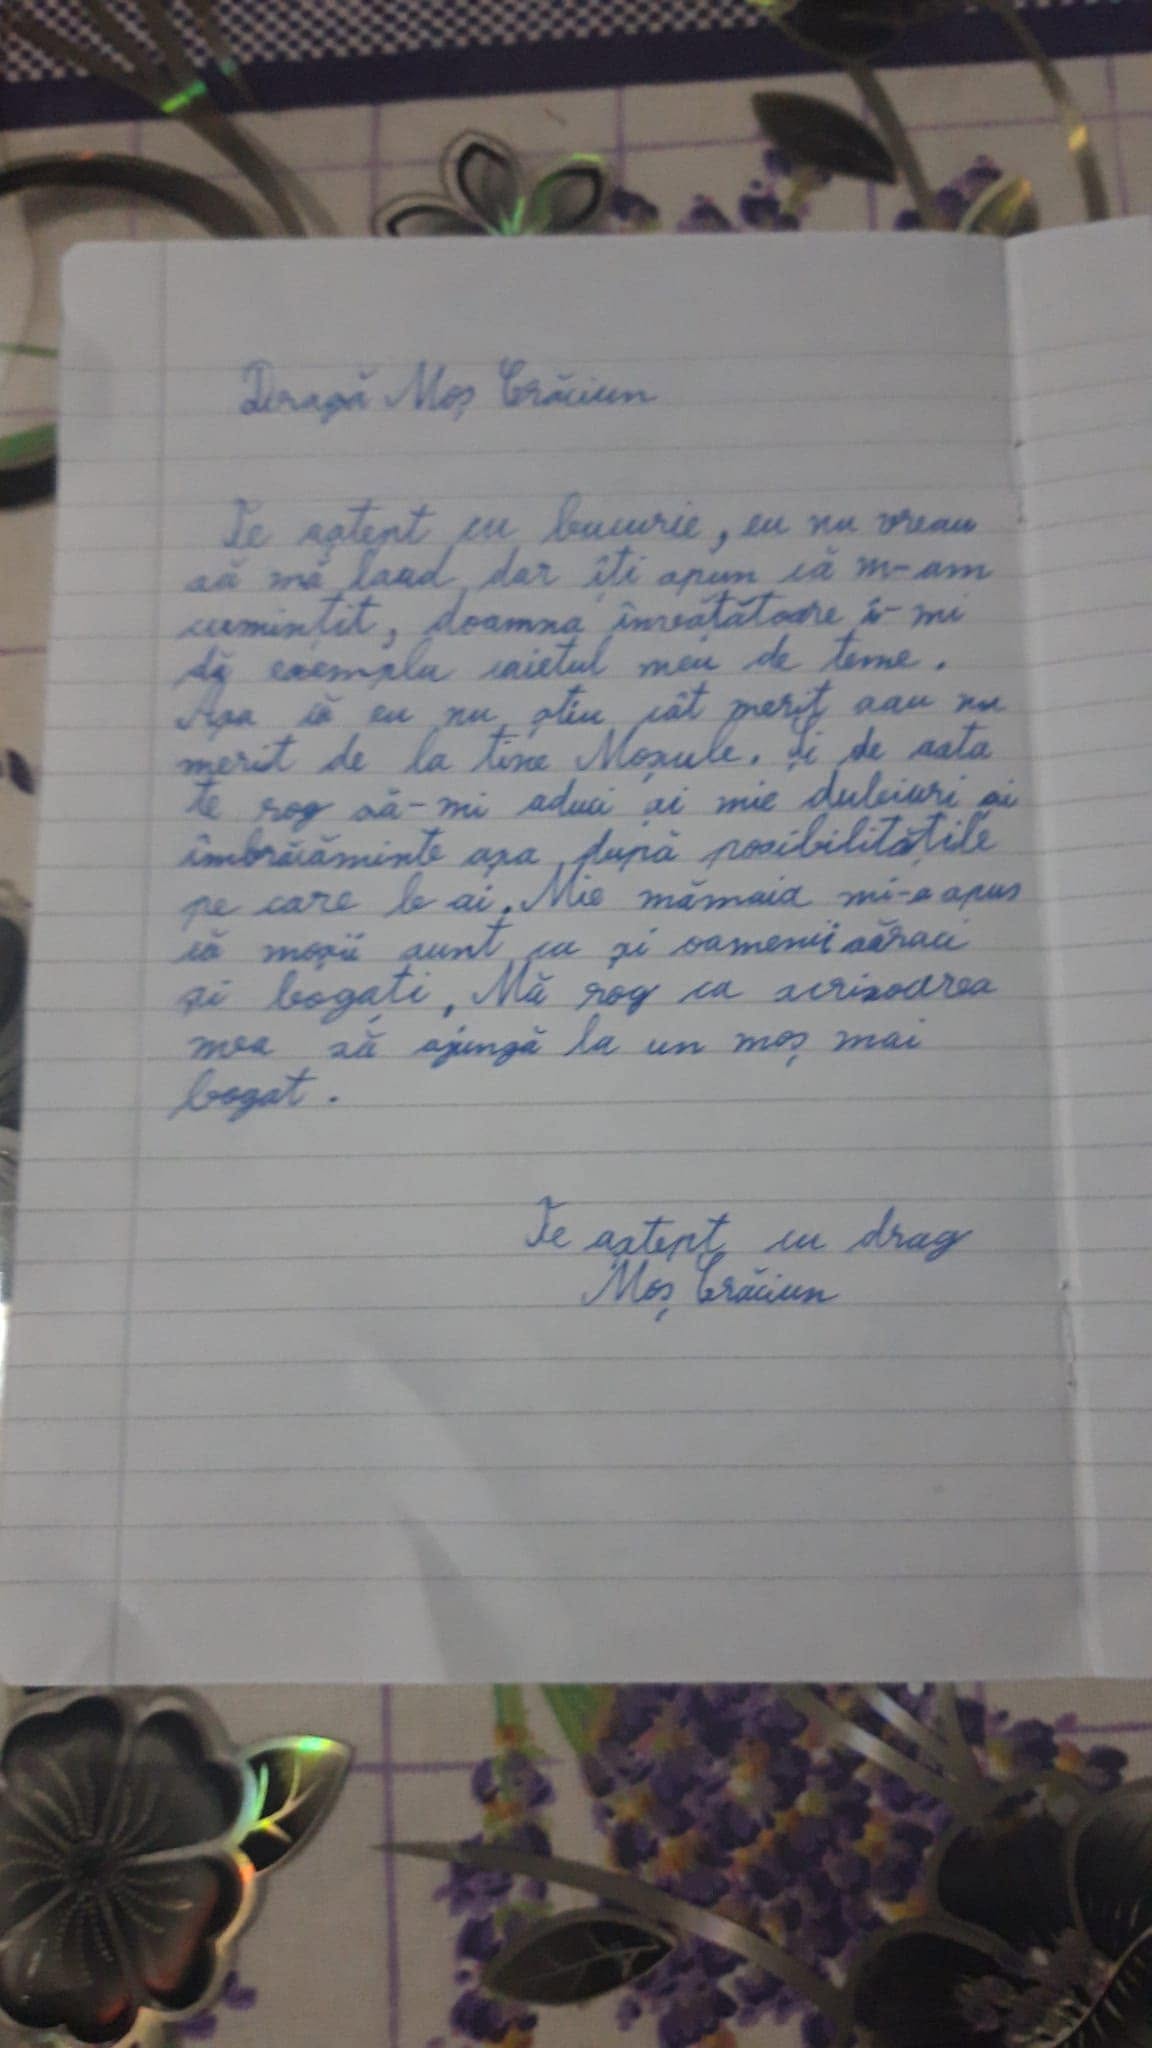 Dragă Moș Crăciun
Te aștept cu bucurie, eu nu vreau
să mă laud, dar îți spun că m-am
cumințit, doamna învățătoare î-mi
dă exemplu caietul meu de teme.
Așa că eu nu știu cât merit sau nu
merit de la tine Moșule. Și de asta
te rog să-mi aduci și mie dulciuri și
îmbrăcăminte așa după posibilitățile
pe care le ai. Mie mămaia mi-a spus
că moșii sunt ca și oamenii săraci
și bogați, Mă rog ca scrisoarea
mea să ajungă la un moș mai
bogat.
Te aștept cu drag
Moș Crăciun